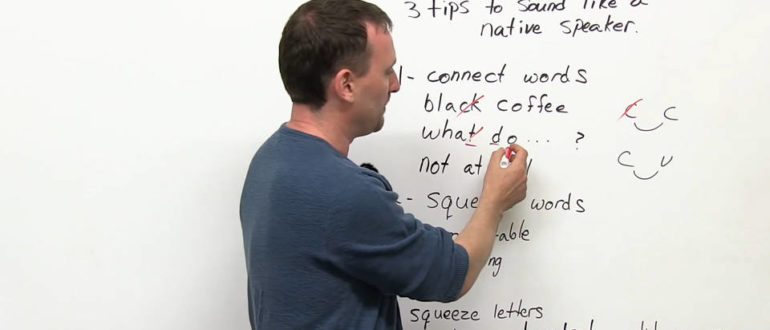 3 tips to sound like a
native speaker.
1- connect words
black coffee C C
what do... ?
not at C V
words
able
ng
squeeze letters